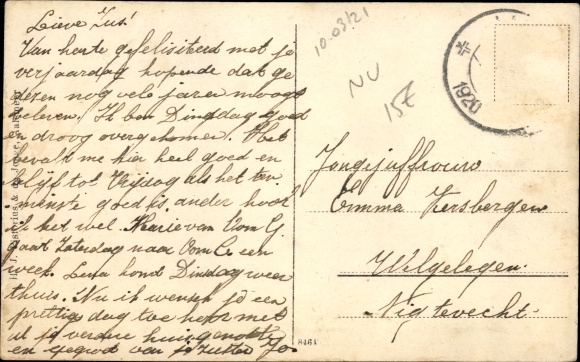 Lieve Zus!
Van harte gefelisiteerd met je
verjaardag hopende dat ge
dezen nog vele jaren moogt
beleven. Ik ben Dinsdag goed
en droog overgekomen. Het
bevalt me hier heel goed en
blijf tot Vrijdag als het ten
minste goed is, ander hoor
ik het wel. Marie van Oom G.
gaat Zaterdag naar Oom C een
week. Lena komd Dinsdag weer
thuis. Nu ik wensch je een
prettige dag toe hoor met
al je verdere huisgenoten
en gegroet van je Zuster Jo
10.03.21
NU
15€
1920
Jongejuffrouw
Emma Kersbergen
Welgelegen
Nigtevecht
8461